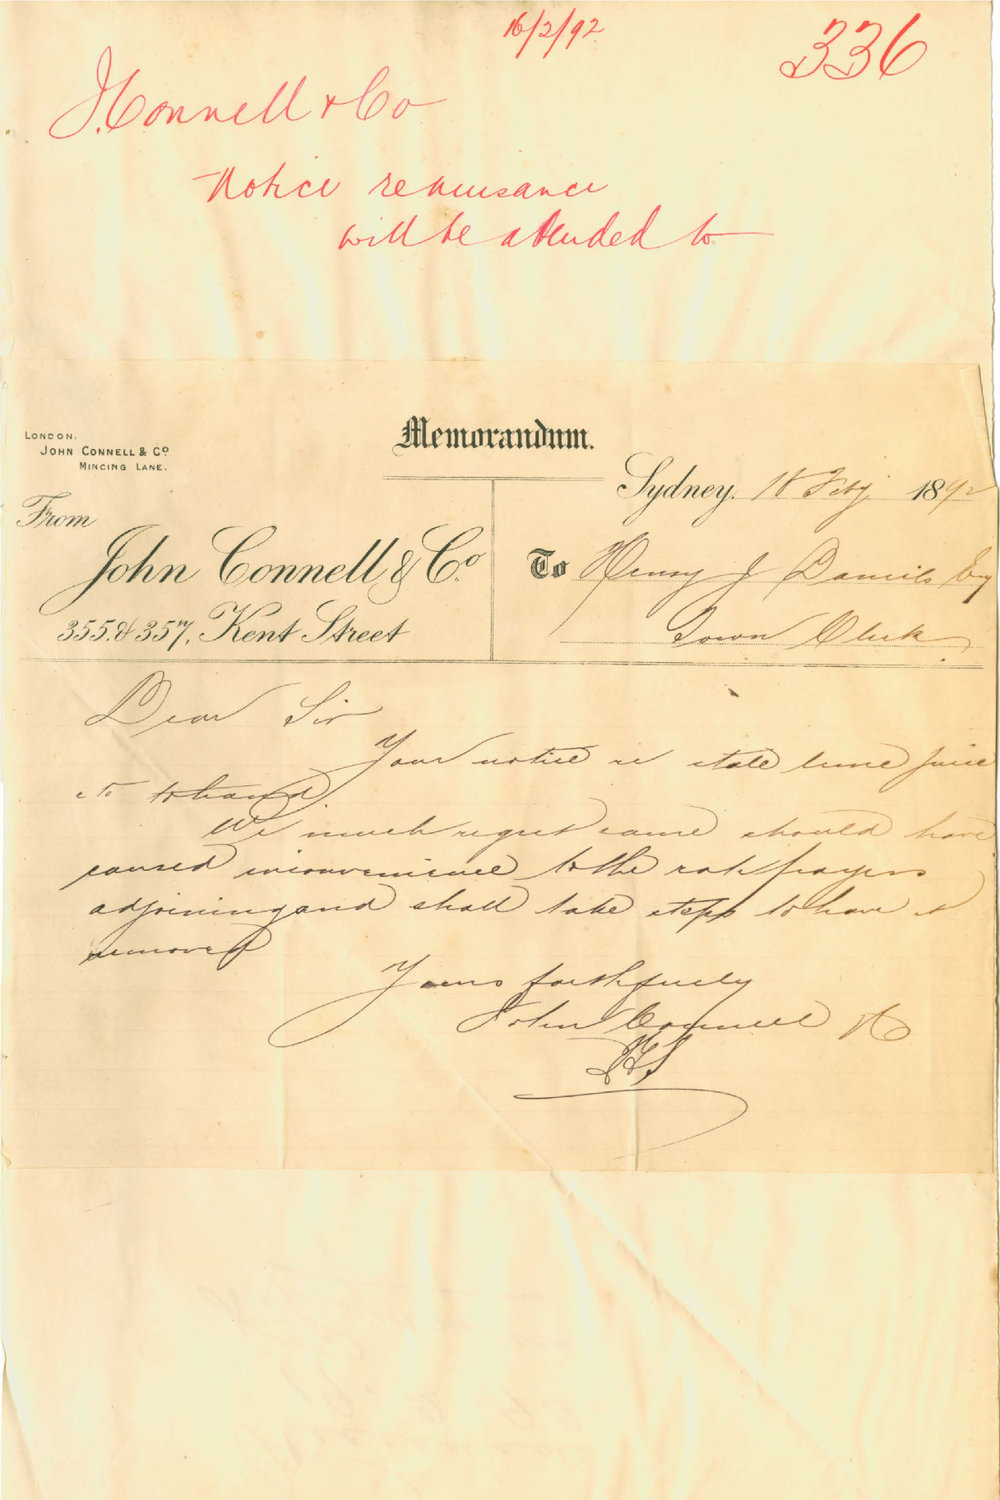 16/2/92
336
J. Connell & Co
Notice re nuisance
will be attended to
Memorandum.
LONDON.
JOHN CONNELL & Co
MINCING LANE.
Sydney, Feby 1892
From
John Connell & Co.
355 & 357, Kent Street
To Henry J Daniels Esq
Town Clerk
Dear Sir
Your notice re stale lime juice
to hand.
We much regret same should have
caused inconvenience to the ratepayers
adjoining and shall take steps to have it
removed
Yours faithfully
John Connell & Co